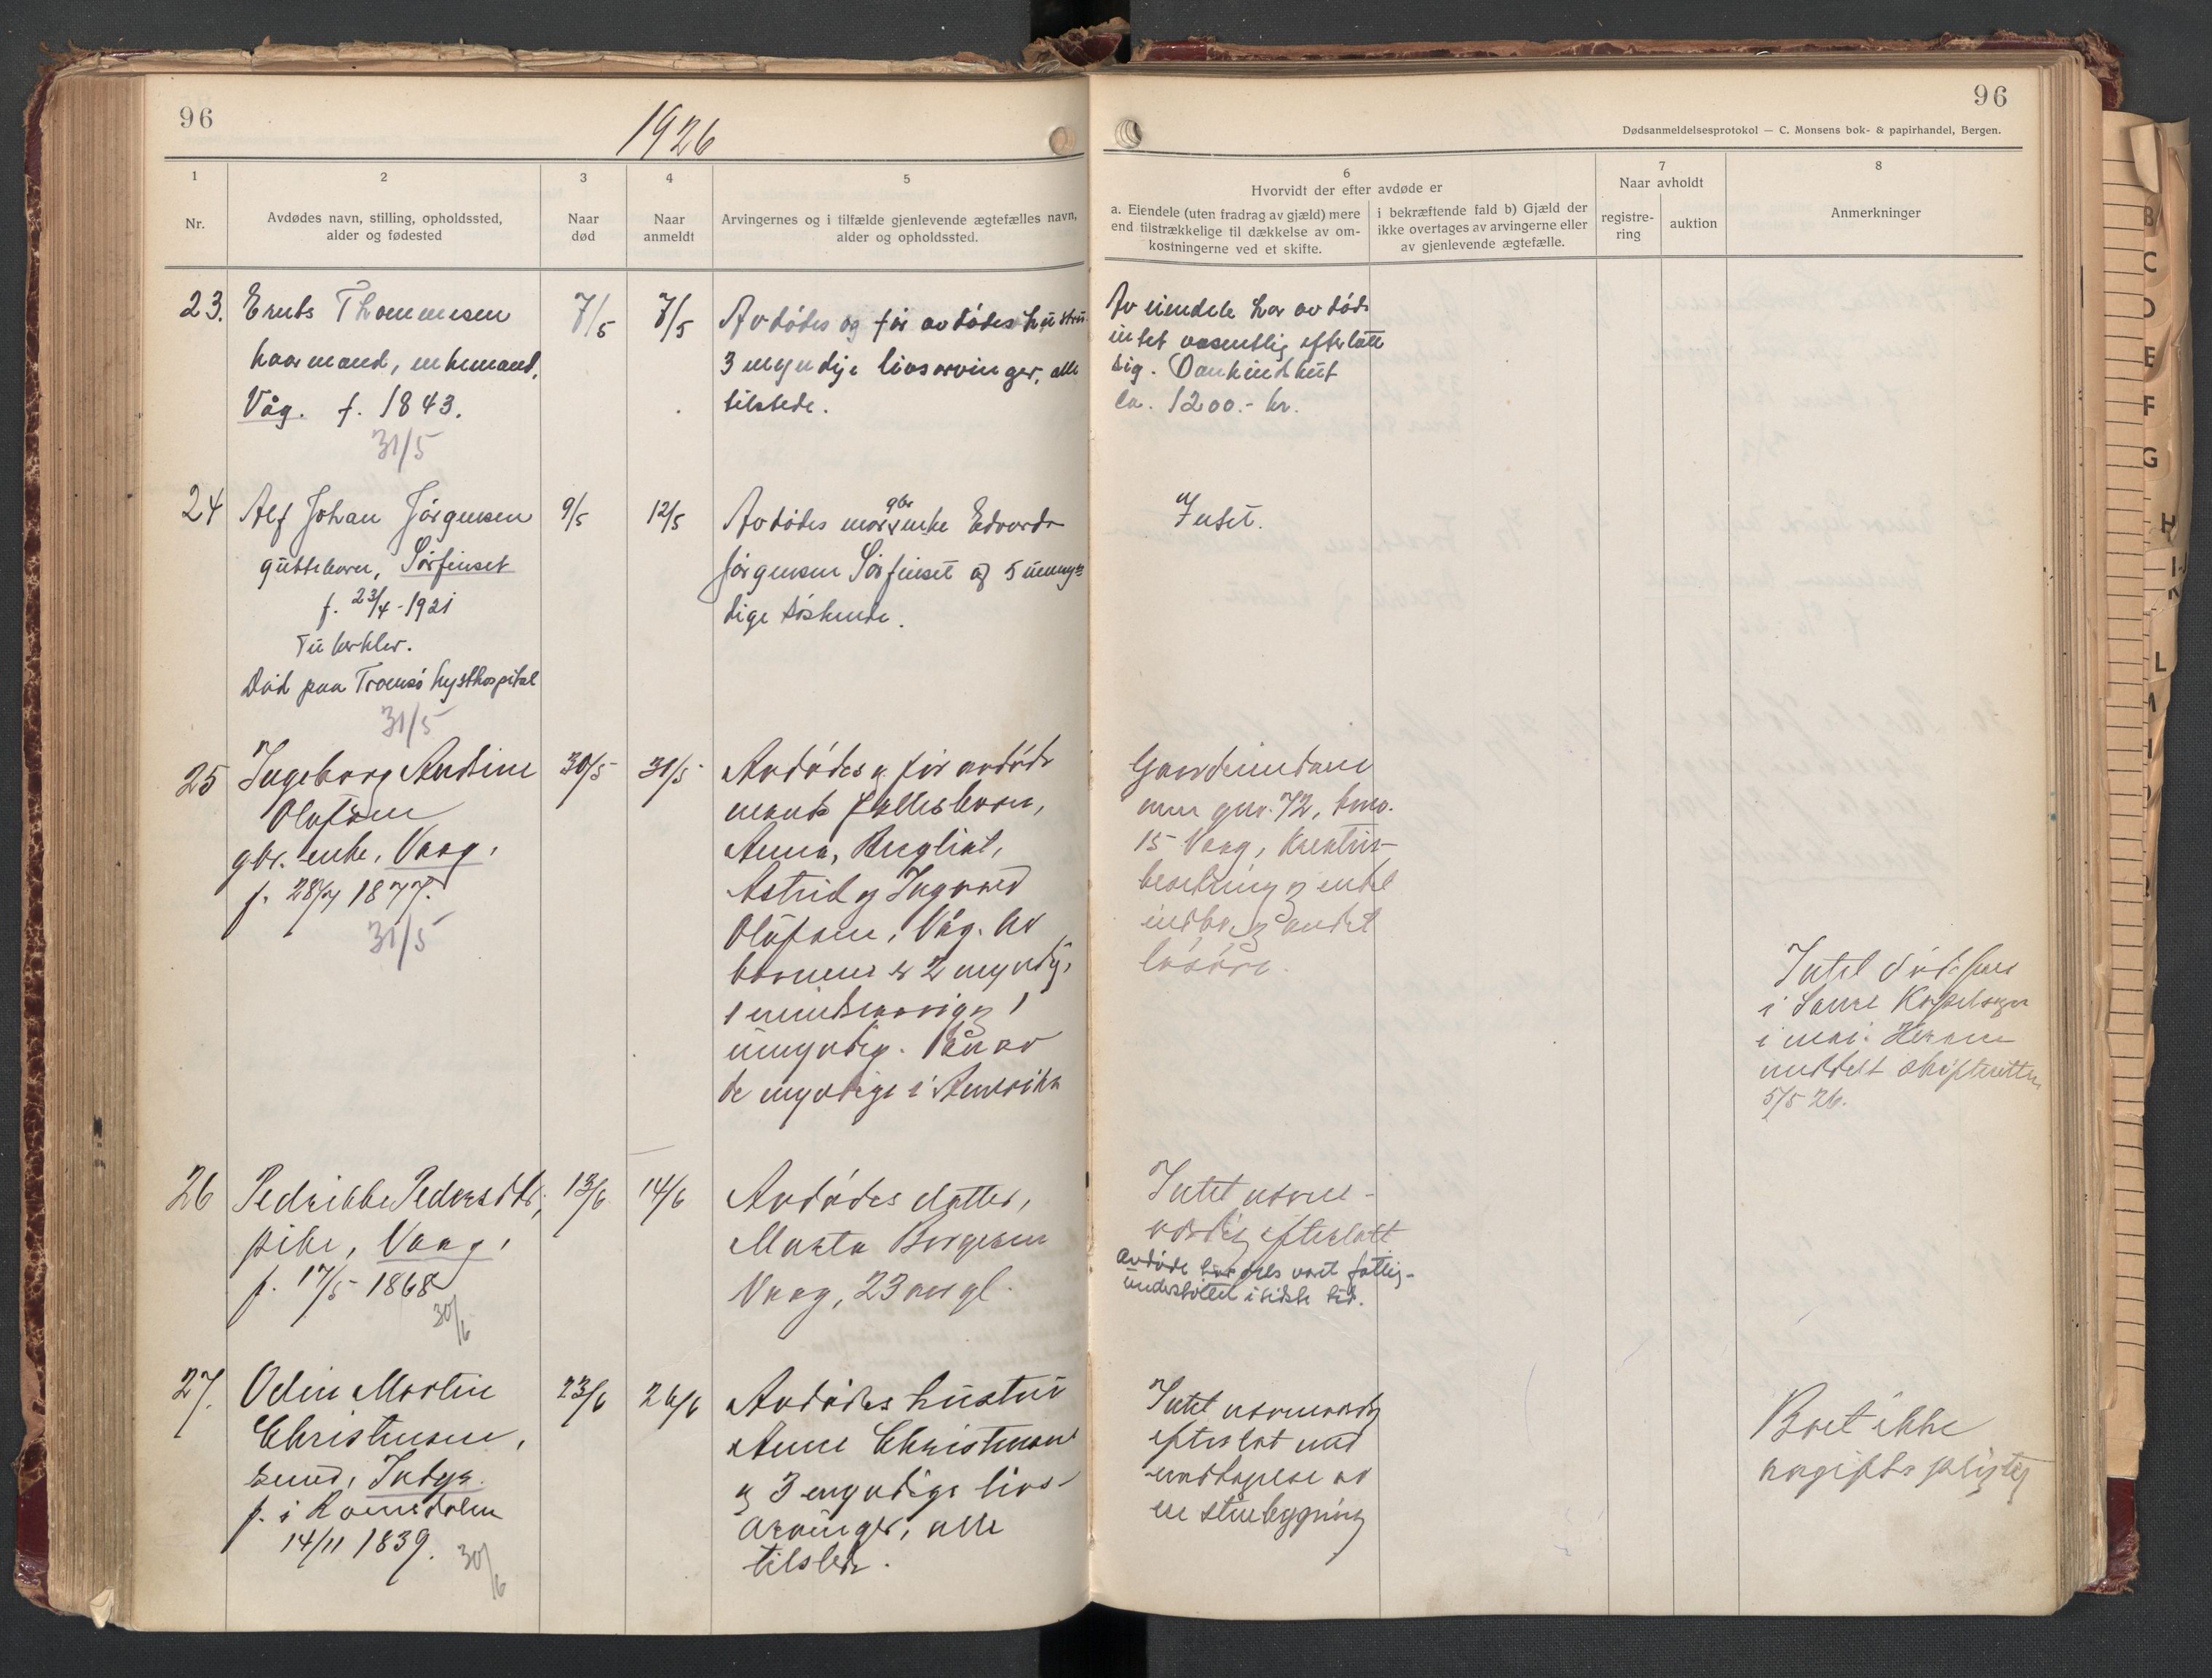 96
1926
1
2
3
4
5
Nr.
Avdødes navn, stilling, opholdssted,
alder og fødested
Naar
død
Naar
anmeldt
Arvingernes og i tilfælde gjenlevende ægtefælles navn,
alder og opholdssted.
23.
Thommesen
kaarmand, enkemand,
Våg. f. 1843.
31/5
7/5
7/5
Avdødes og før avdødes hustru
3 myndige livsarvinger, alle
tilstede.
24
Alf Johan Jørgensen
guttebarn, Sørfinset
f. 23/4-1921
Tuberkler.
Død paa Tromsø kysthospital
31/5
9/5
12/5
gbr
Avdødes mor, enke Edvarda
Jørgensen Sørfinset og 5 umyn-
dige søskende.
25
Ingeborg Andine
Olufsen
gbr. enke, Vaag,
f. 28/4 1877.
31/5
30/5
31/5
Avdødes og før avdøde
mands fællesbarn,
Anna,
Astrid og Ingvard
Olufsen, Våg. Av
barnene er 2 myndig,
1 mindreaarig og 1
umyndig. En av
de myndige i Amerika
26
Pedrikke Pedersdtr,
pike, Vaag,
f. 17/5 1868
30/6
13/6
14/6
Avdødes datter,
Marta Borgesen
Vaag, 23 aar gl.
27.
Odin Martin
Christensen,
Indyr.
f. i Romsdalen
14/11 1839.
30/6
23/6
26/6
Avdødes hustru
Anne Christensen
og 3 myndige livs-
arvinger, alle
tilstede.
96
Dødsanmeldelsesprotokol — C. Monsens bok- & papirhandel, Bergen.
6
Hvorvidt der efter avdøde er
a. Eiendele (uten fradrag av gjæld) mere
end tilstrækkelige til dækkelse av om-
kostningerne ved et skifte.
i bekræftende fald b) Gjæld der
ikke overtages av arvingerne eller
av gjenlevende ægtefælle.
7
Naar avholdt
registre-
ring
auktion
8
Anmerkninger
Av eiendele har avdøde
intet væsentlig efterlatt
sig. Bankindskut
ca. 1200.- kr.
Intet.
Gaardeiendom
gnr. 72, bnr.
15 Vaag, kreatur-
besetning og endel
indbo og andet
løsøre.
Intet dødsfald
i Sørre Kapelsogn
i mai. Herom
meddelt skifteretten
5/5 26.
Intet nævne-
værdig efterlatt
Avdøde har dels været fattig-
understøttet i sidste tid.
Intet nævneværdig
efterlat med
undtagelse av
en stuebygning
Boet ikke
avgiftspligtig
B
C
D
E
F
G
H
I-J
K
L
M